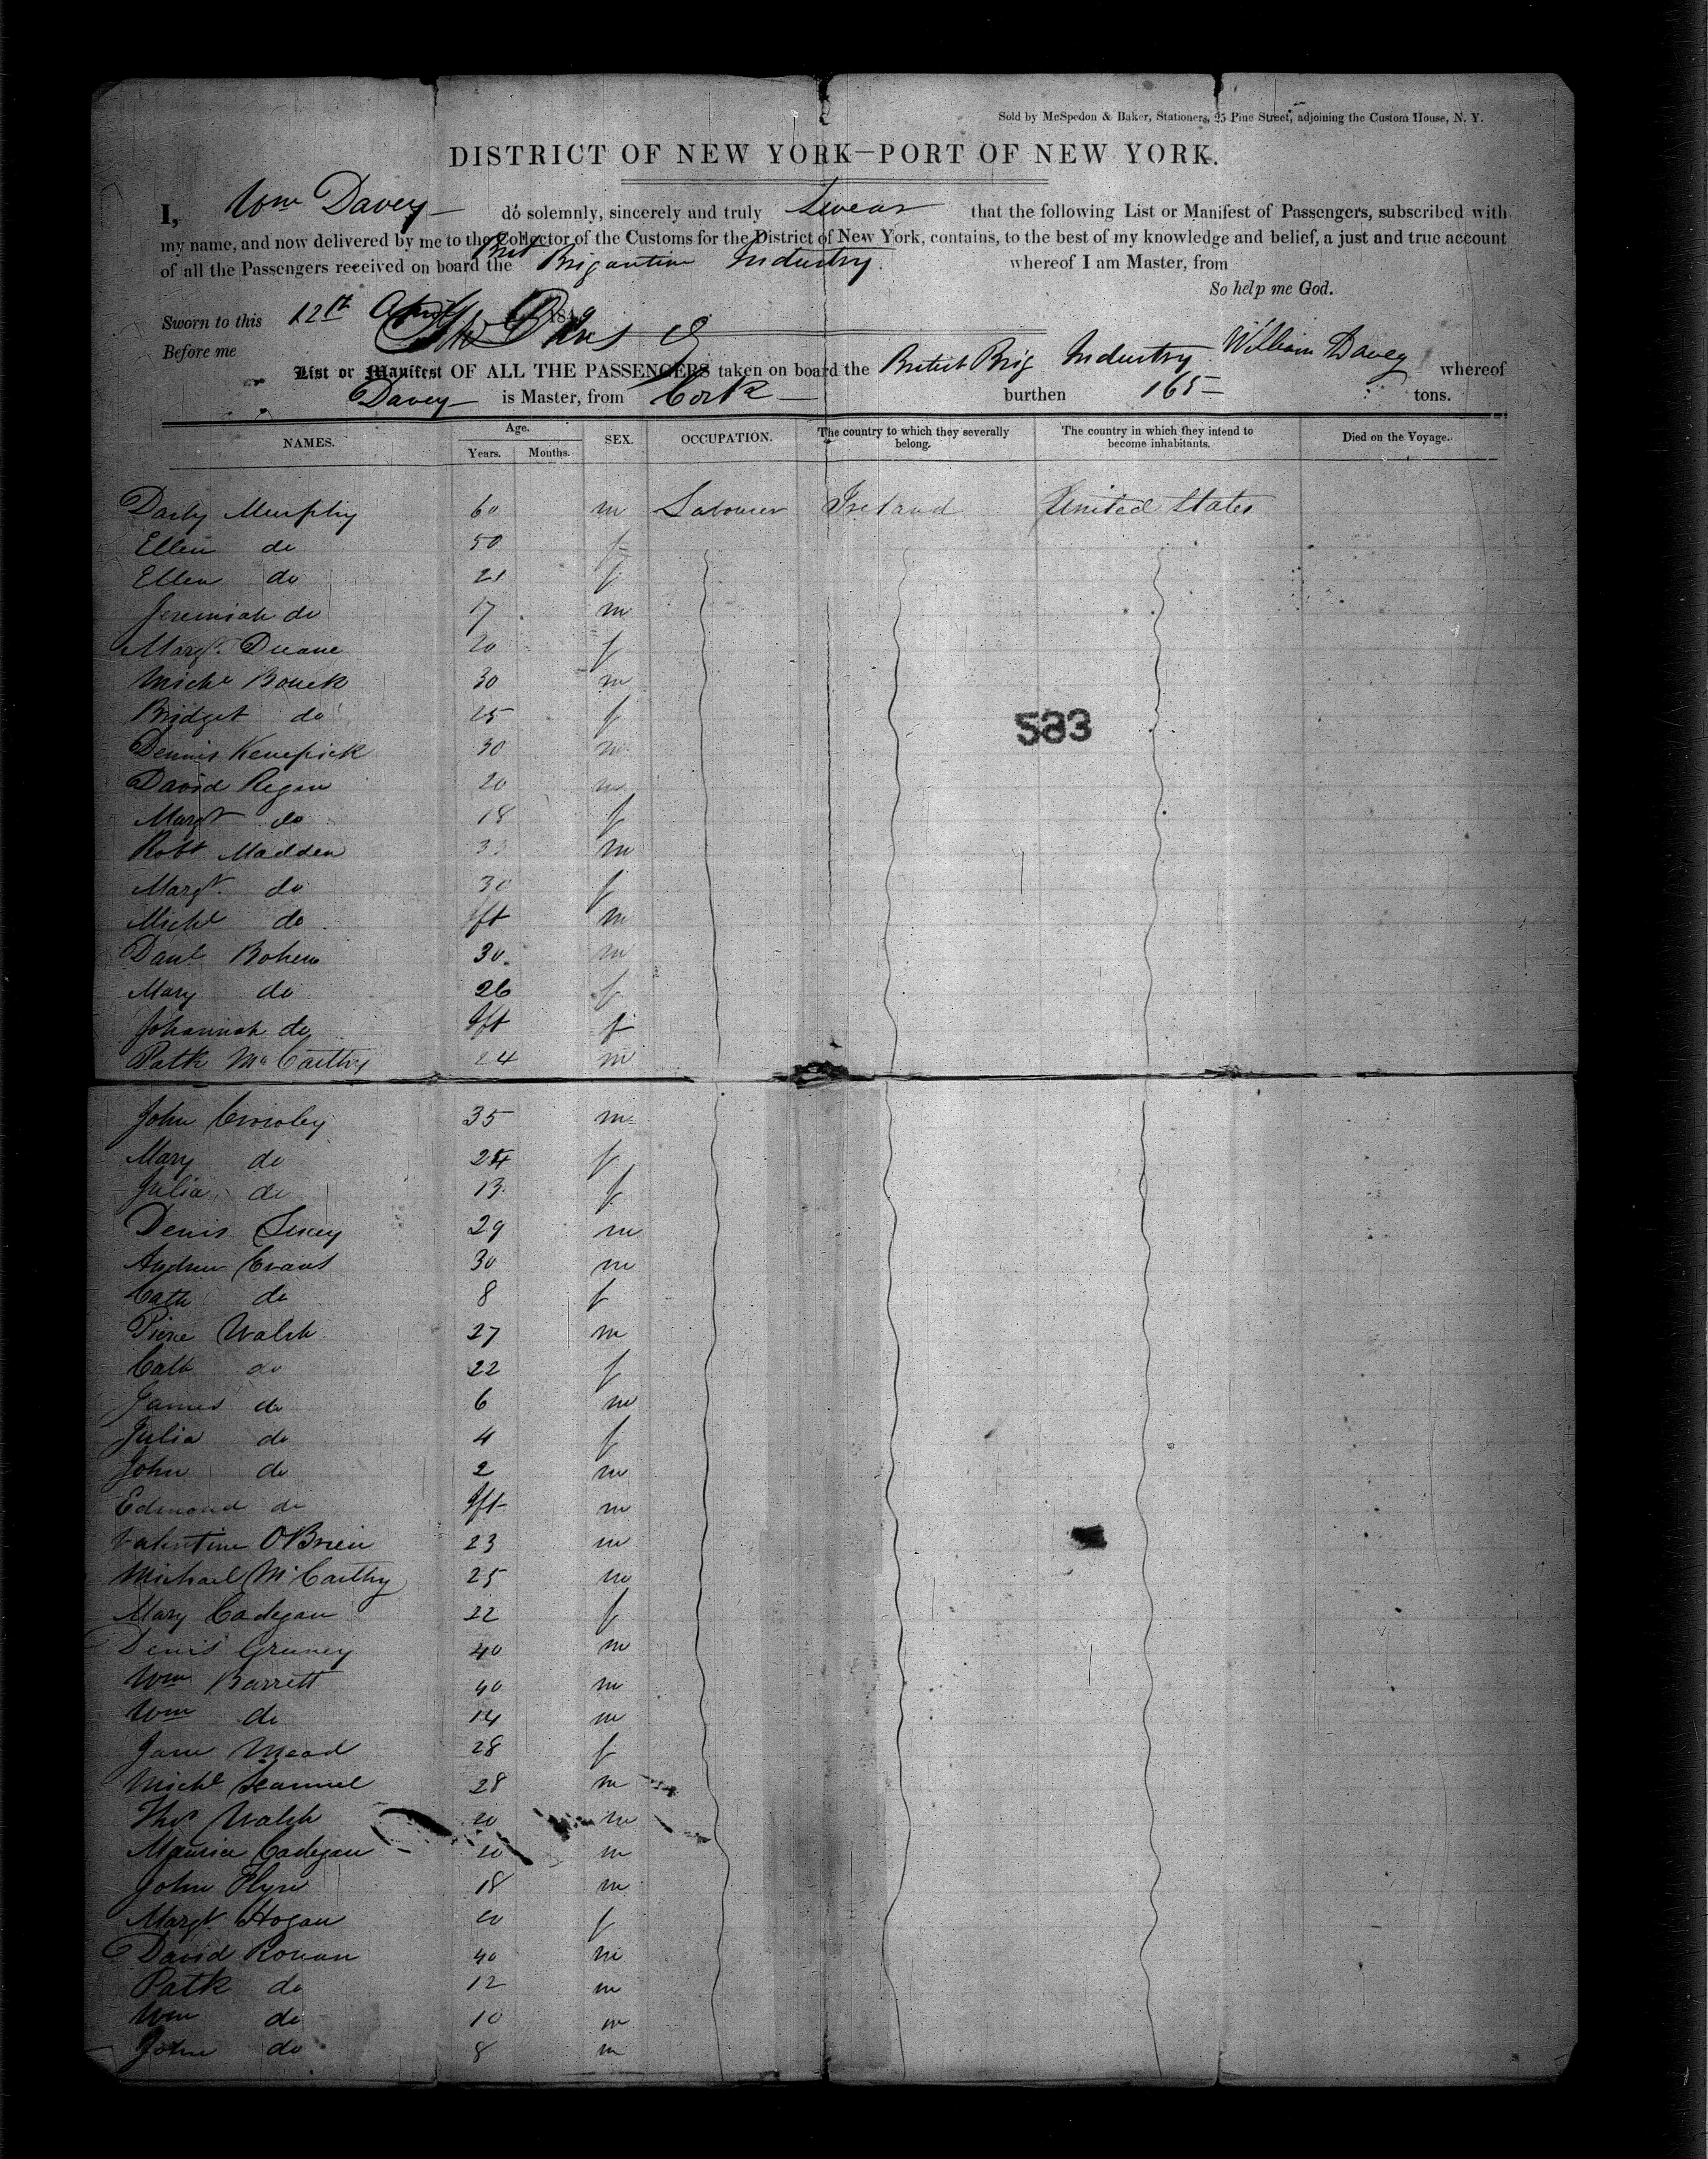 Sold by McSpedon & Baker, Stationers, 25 Pine Street, adjoining the Custom House, N. Y.
DISTRICT OF NEW YORK—PORT OF NEW YORK.
I, Wm Davey do solemnly, sincerely and truly Swear that the following List or Manifest of Passengers, subscribed with
my name, and now delivered by me to the Collector of the Customs for the District of New York, contains, to the best of my knowledge and belief, a just and true account
of all the Passengers received on board the Brit Brigantine Industry. whereof I am Master, from
So help me God.
Sworn to this 12th April 18
Before me
William Davey
List or Manifest OF ALL THE PASSENGERS taken on board the British Brig Industry whereof
Davey is Master, from Cork burthen 165 tons.
NAMES. Age. Years. Months. SEX. OCCUPATION. The country to which they severally belong. The country in which they intend to become inhabitants. Died on the Voyage.
Darby Murphy 60 m Labourer Ireland United States
Ellen do 50 f
Ellen do 21 f
Jeremiah do 17 m
Margt. Duane 20 f
Michl Bouck 30 m
Bridget do 25 f
583
Dennis Kenefick 30 m
David Regan 20 m
Margt do 18 f
Robt Madden m
Margt. do 30 f
Michl do Ift m
Danl. Bohen 30. m
Mary do 26 f
Johannah do Ift f
Patk McCarthy 24 m
John Crowley 35 m
Mary do 24 f
Julia do 13 f
Denis 29 m
Andrew Evans 30 m
Cath do 8 f
Pierce Walsh 27 m
Cath do 22 f
James do 6 m
Julia do 4 f
John do 2 m
Edmond do Ift m
Valentine OBrien 23 m
Michael McCarthy 25 m
Mary Cadegan 22 f
Denis Greaney 40 m
Wm Barrett 40 m
Wm do 14 m
Jane Mead 28 f
Michl Scannel 28 m
Thos Walsh 20 m
Maurice Cadegan 20 m
John Flyn 18 m
Margt. Hogan 20 f
David Ronan 40 m
Patk do 12 m
Wm do 10 m
John do 8 m